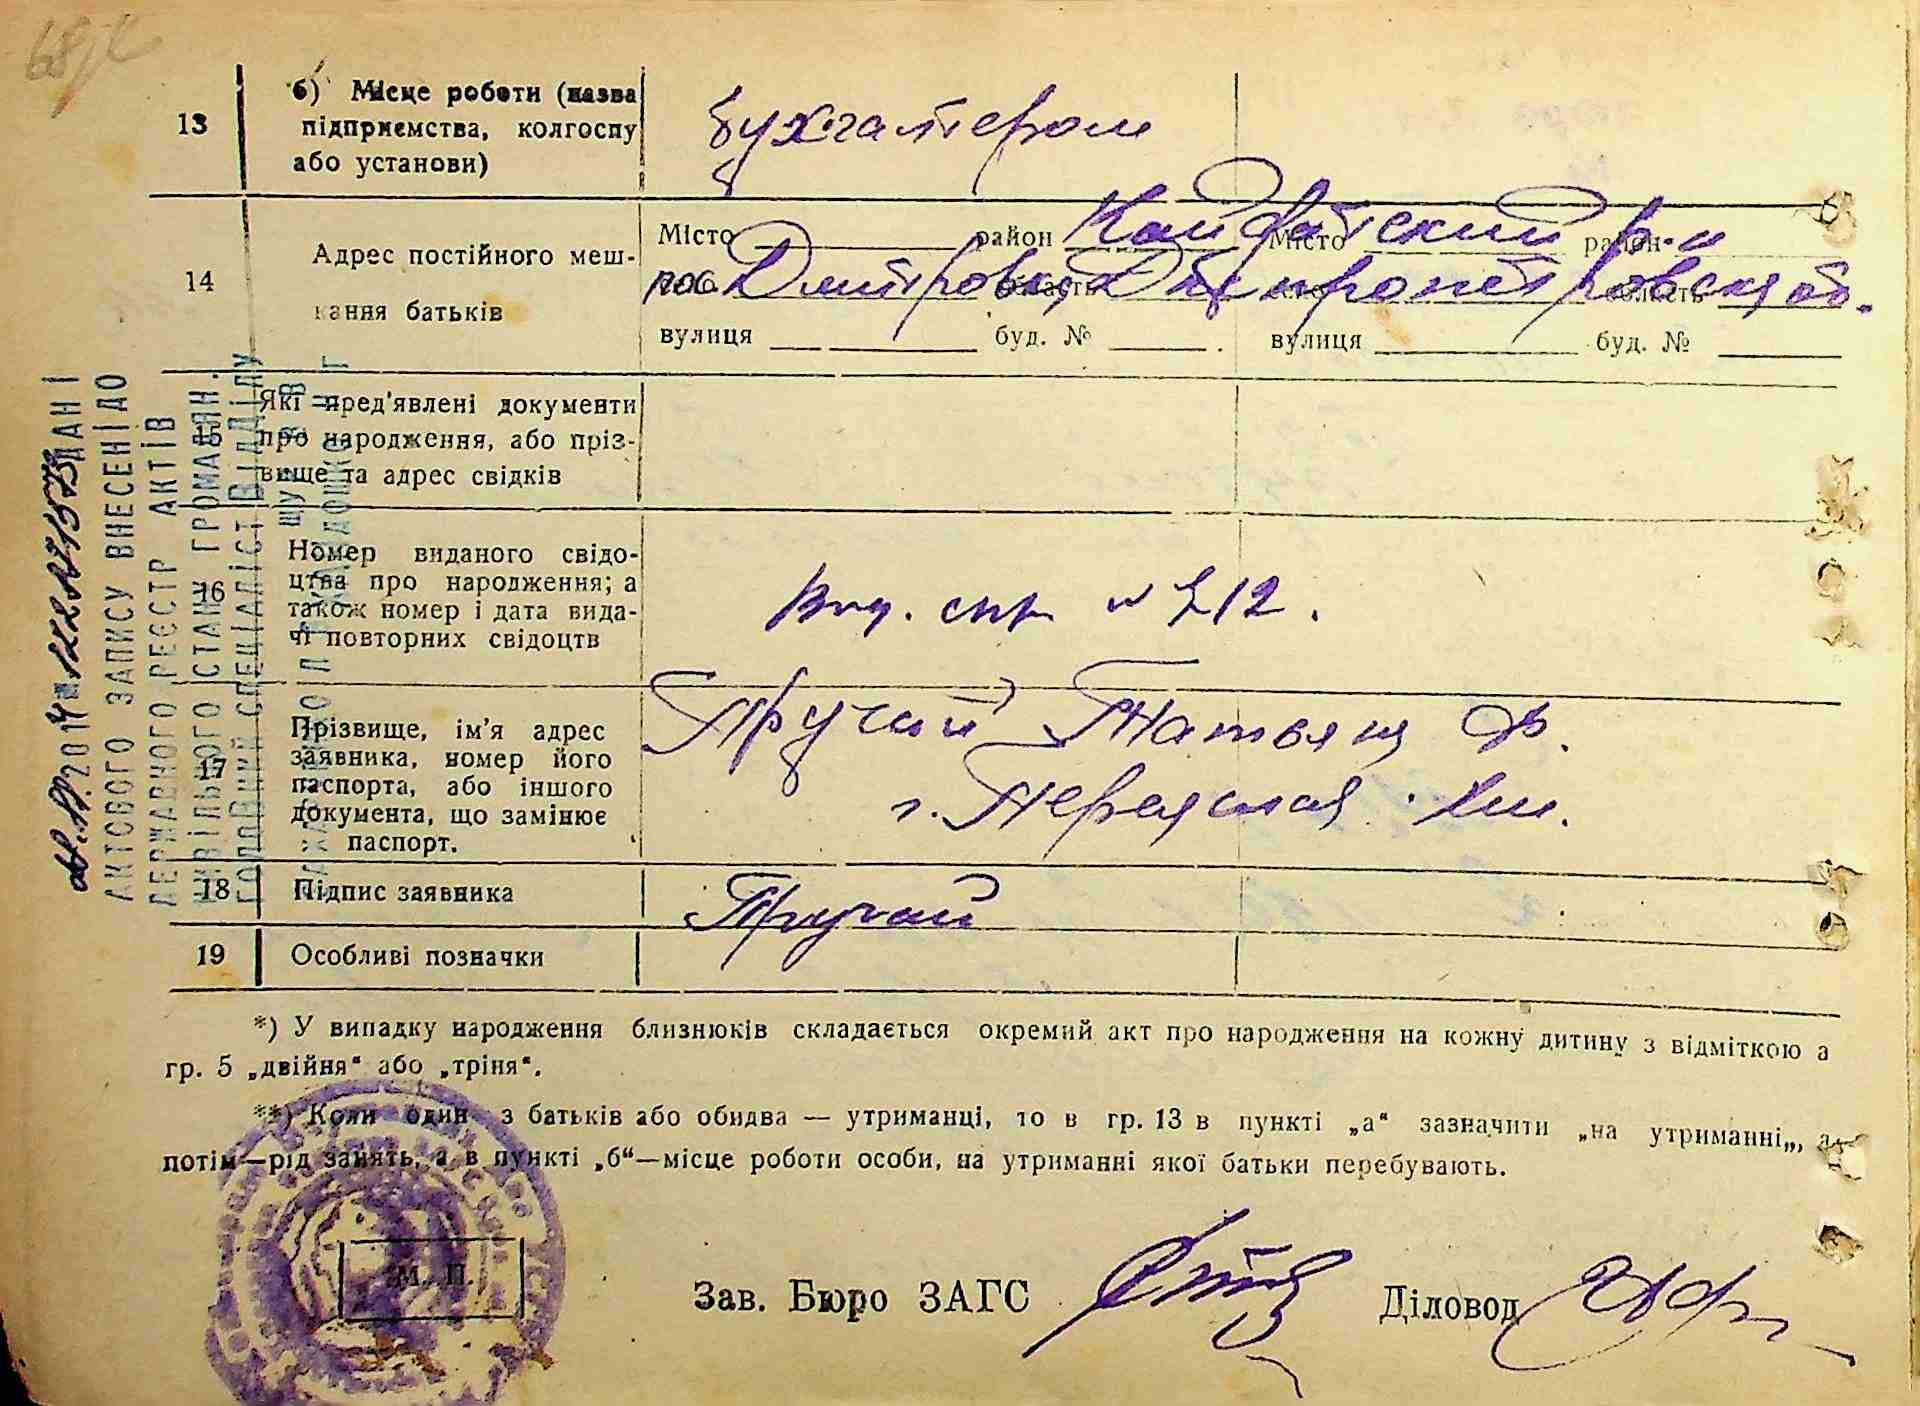 13 б) Місце роботи (назва
підприємства, колгоспу
або установи)
бухгалтером
14 Адрес постійного меш-
кання батьків
Місто район Місто район
Кайдакский р-н
пос. Дмитровка Днепропетровская об.
вулиця буд. № вулиця буд. №
15 Які пред'явлені документи
про народження, або пріз-
вище та адрес свідків
16 Номер виданого свідо-
цтва про народження; а
також номер і дата вида-
чі повторних свідоцтв
выд. спр. № 212.
17 Прізвище, ім'я адрес
заявника, номер його
паспорта, або іншого
документа, що замінює
паспорт.
Пручай Татьяна
г. Переяслав. Хм.
18 Підпис заявника
Пручай
19 Особливі позначки
ДАНІ
АКТОВОГО ЗАПИСУ ВНЕСЕНІ ДО
ДЕРЖАВНОГО РЕЄСТР АКТІВ
ЦИВІЛЬНОГО СТАНУ ГРОМАДЯН.
ГОЛОВНИЙ СПЕЦІАЛІСТ ВІДДІЛУ
*) У випадку народження близнюків складається окремий акт про народження на кожну дитину з відміткою а
гр. 5 „двійня“ або „тріня“.
**) Коли один з батьків або обидва — утриманці, то в гр. 13 в пункті „а“ зазначити „на утриманні„, а
потім—рід занять, а в пункті „б“—місце роботи особи, на утриманні якої батьки перебувають.
М. П.
Зав. Бюро ЗАГС Діловод